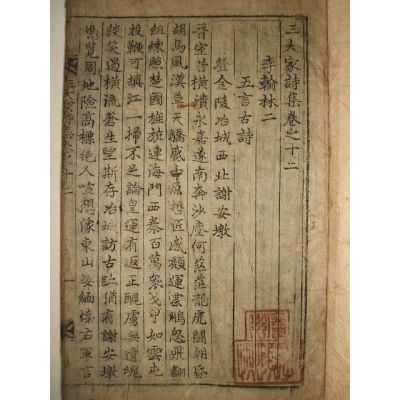 三大家詩集卷之十二
李翰林二
五言古詩
登金陵冶城西北謝安墩
晉室昔橫潰永嘉遂南奔沙塵何茫茫龍虎鬪朝昏
胡馬風漢草天驕蹙中原哲匠感頹運雲鵬忽飛翻
組練照楚國旌旗連海門西秦百萬衆戈甲如雲屯
投鞭可填江一掃不足論皇運有返正醜虜無遺魂
談笑遏橫流蒼生望斯存冶城訪古跡猶有謝安墩
憑覽周地險高標絕人喧想像東山姿緬懷右軍言